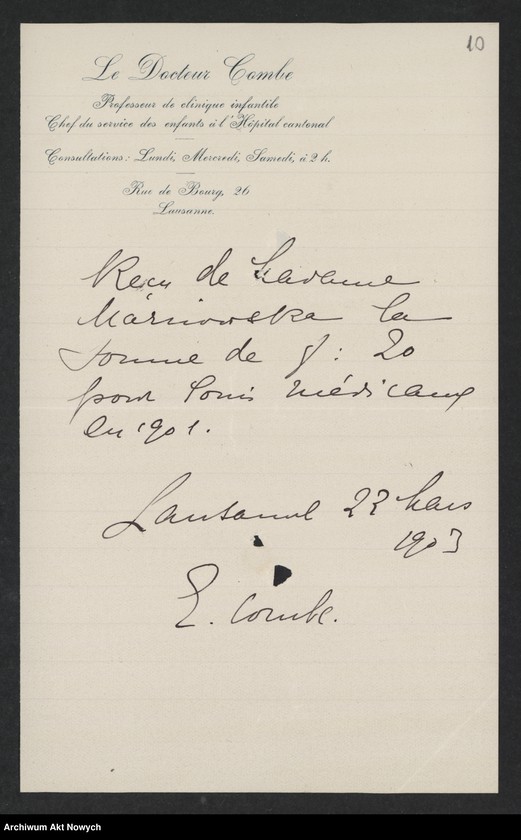 10
Le Docteur Combe
Professeur de clinique infantile
Chef du service des enfants à l'Hôpital cantonal
Consultations: Lundi, Mercredi, Samedi, à 2 h.
Rue de Bourg, 26
Lausanne.
Reçu de Madame
la
somme de f: 20
pour soins médicaux
en 1901.
Lausanne 22 Mars
1903
E. Combe.
Archiwum Akt Nowych